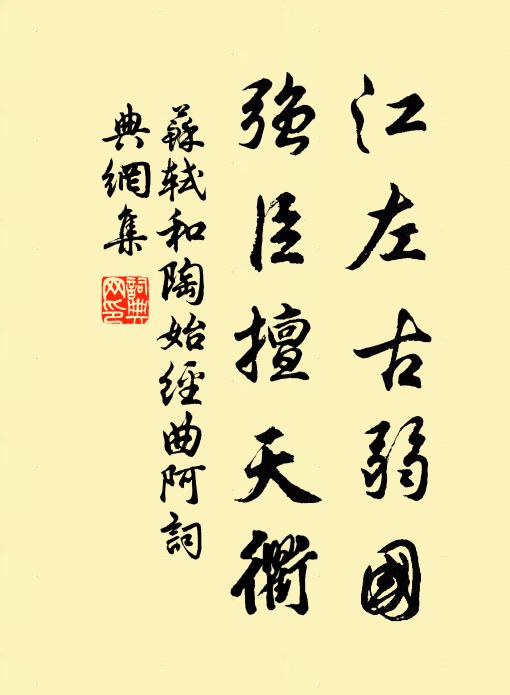 江左古弱國
強臣擅天衢
蘇軾和陶始經曲阿詞
典網集
詞典
網印